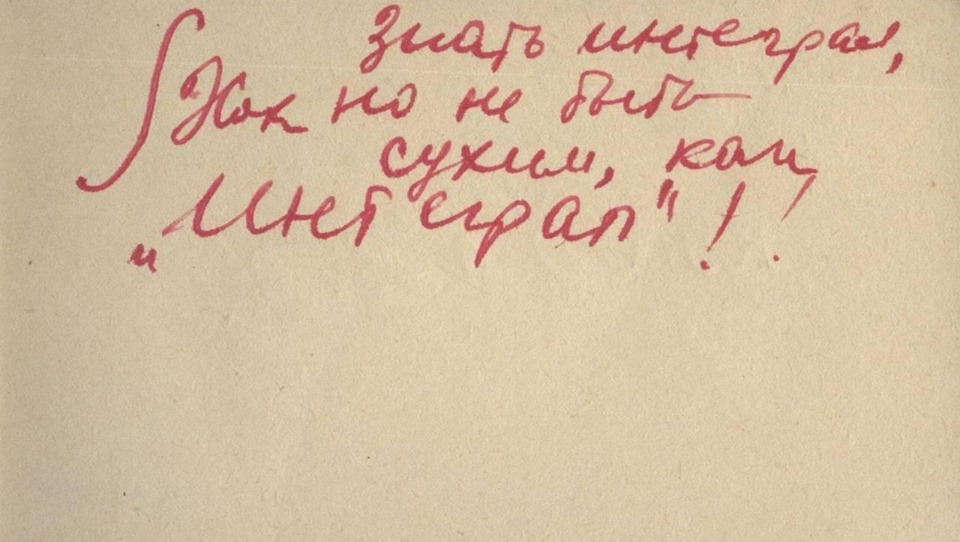 Знать интеграл,
∫ Как но не быть
сухим, как
„Интеграл"!!